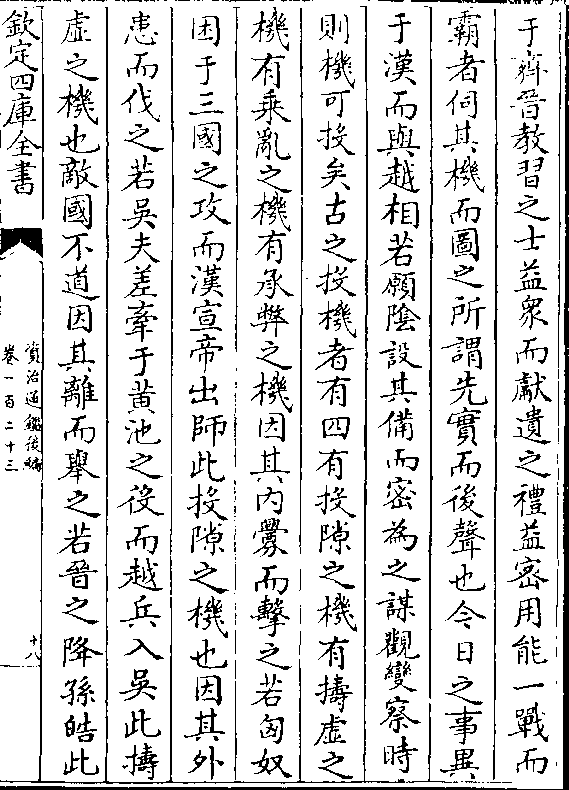 于齊晉教習之士益衆而獻遺之禮益密用能一戰而
霸者伺其機而圖之所謂先實而後聲也今日之事異
于漢而與越相若願陰設其備而密為之謀觀變察時
則機可投矣古之投機者有四有投隙之機有擣虛之
機有乘亂之機有承弊之機因其內釁而擊之若匈奴
困于三國之攻而漢宣帝出師此投隙之機也因其外
患而伐之若吳夫差牽于黃池之役而越兵入吳此擣
虛之機也敵國不道因其離而舉之若晉之降孫皓此
欽定四庫全書
資治通鑑後編
卷一百二十三
十八